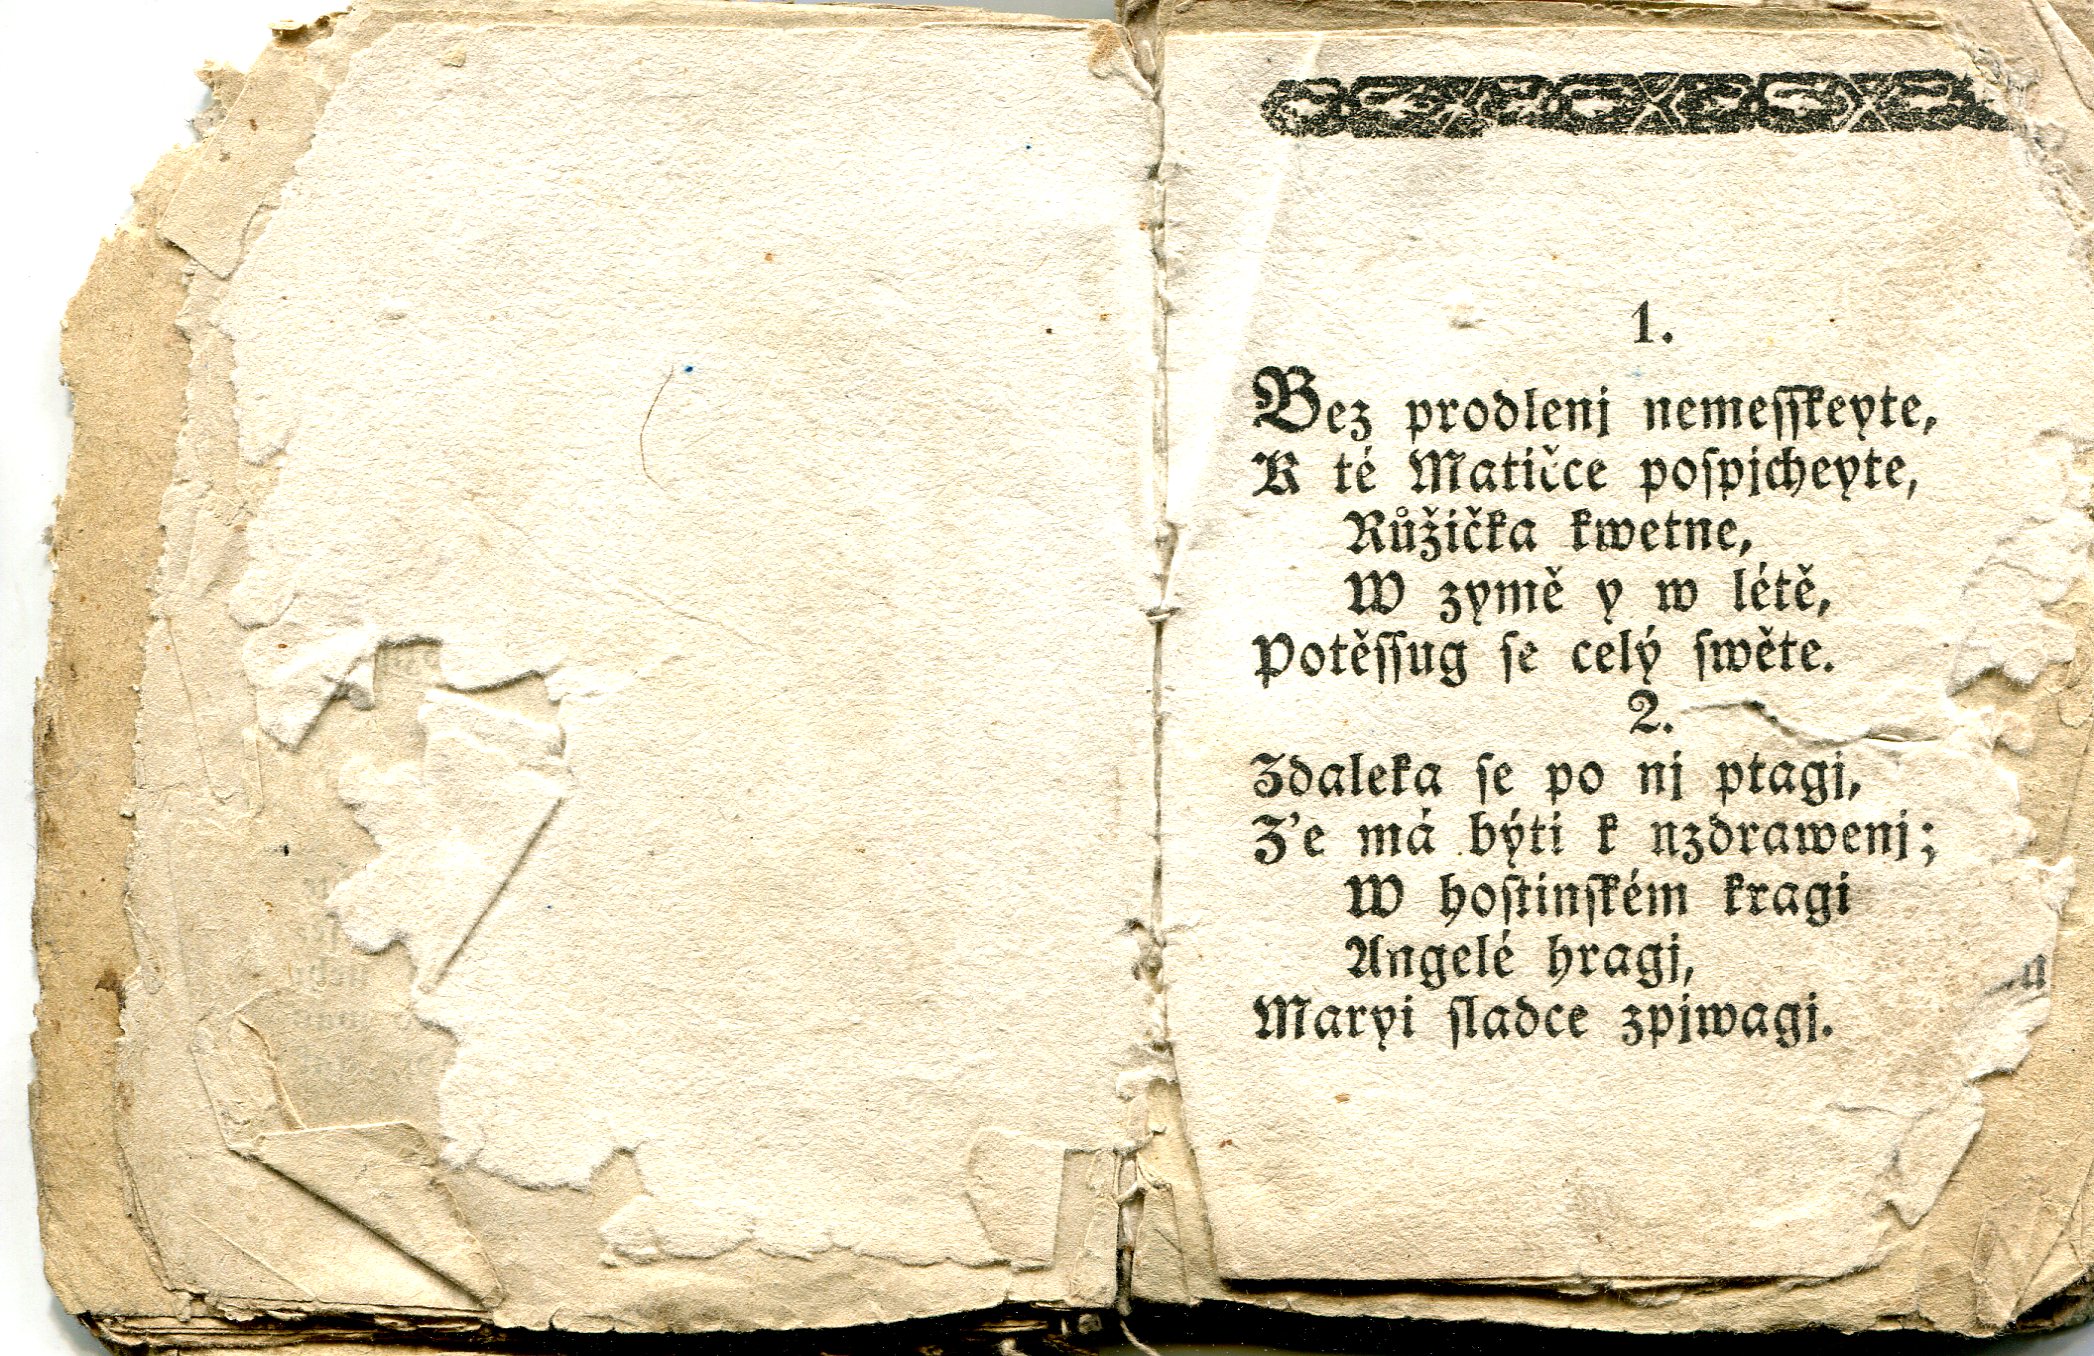 1.
Bez prodlenj nemeſſkeyte,
K té Matičce poſpjcheyte,
Růžička kwetne,
W zymě y w létě,
Potěſſug ſe celý ſwěte.
2.
Zdaleka ſe po nj ptagj,
Z'e má býti k nzdrawenj;
W hoſtinſkém kragi
Angelé hragj,
Maryi ſladce zpjwagj.